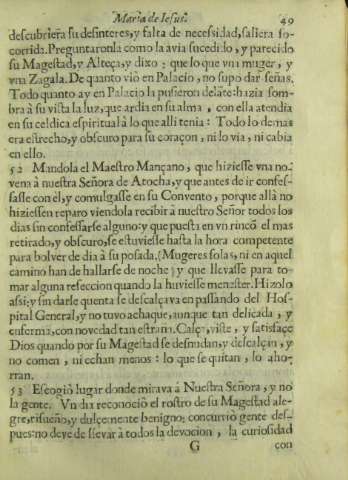 Maria de Iesus. 49
descubriera su desinteres, y falta de necessidad, saliera so-
corrida. Preguntaronla como la avia sucedido, y parecido
su Magestad, y Alteça, y dixo: que lo que vna muger, y
vna Zagala. De quanto viò en Palacio, no supo dar señas.
Todo quanto ay en Palacio la pusieron delãte: hazia som-
bra à su vista la luz, que ardia en su alma, con ella atendia
en su celdica espiritual à lo que alli tenia: Todo lo demàs
era estrecho, y obscuro para su coraçon, ni lo via, ni cabia
en ello.
52 Mandola el Maestro Mançano, que hiziesse vna no-
vena à nuestra Señora de Atocha, y que antes de ir confes-
sasse con èl, y comulgasse en su Convento, porque allà no
hiziessen reparo viendola recibir à nuestro Señor todos los
dias sin confessarse alguno: y que puesta en vn rincõ el mas
retirado, y obscuro, se estuviesse hasta la hora competente
para bolver de dia à su posada. (Mugeres solas, ni en aquel
camino han de hallarse de noche) y que llevasse para to-
mar alguna refeccion quando la huviesse menester. Hizolo
assi: y sin darle quenta se descalçava en passando del Hos-
pital General, y no tuvo achaque, aunque tan delicada, y
enferma, con novedad tan estraña. Calça, viste, y satisface
Dios quando por su Magestad se desnudan, y descalçan, y
no comen, ni echan menos: lo que se quitan, lo aho-
rran.
53 Escogiò lugar donde mirava à Nuestra Señora, y no
la gente. Vn dia reconociò el rostro de su Magestad ale-
gre, risueño, y dulcemente benigno; concurriò gente des-
pues: no deve de llevar à todos la devocion, la curiosidad
G con